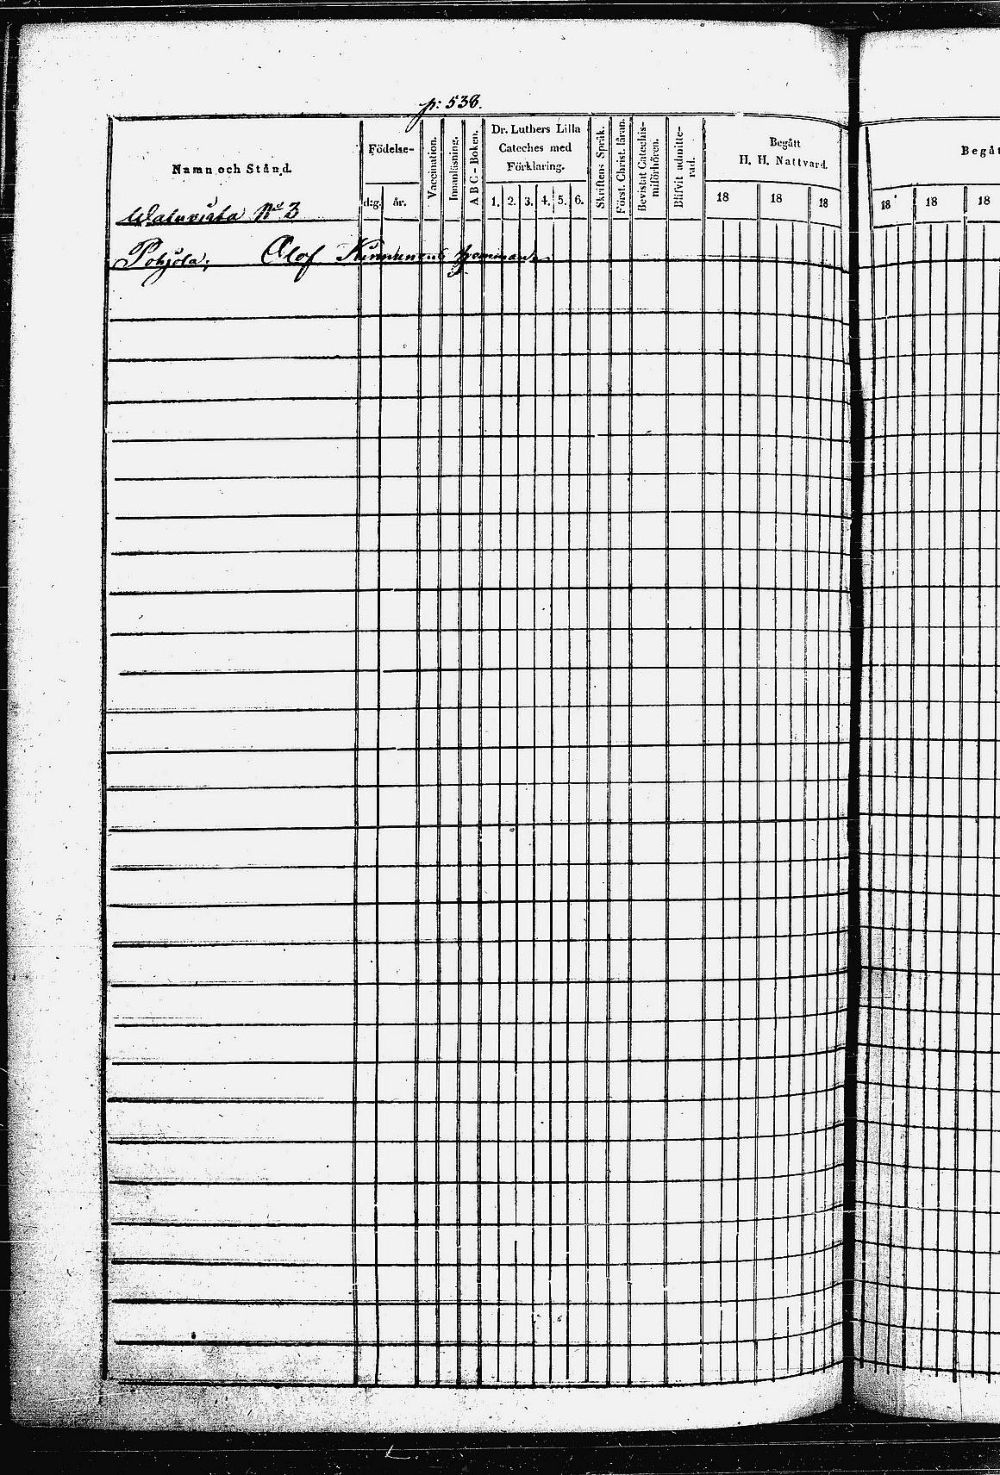 p: 538.
Namn och Stånd.
Födelse-
d:g.
år.
Vaccination.
Innanläsning.
A B C - Boken.
Dr. Luthers Lilla
Cateches med
Förklaring.
1. 2. 3. 4. 5. 6.
Skriftens Språk.
Först. Christ. läran.
Bevistat Catechis-
miförhören.
Blifvit admitte-
rad.
Begått
H. H. Nattvard.
18 18 18
Begåt
18 18 18
No 3
Pohjola, Olof